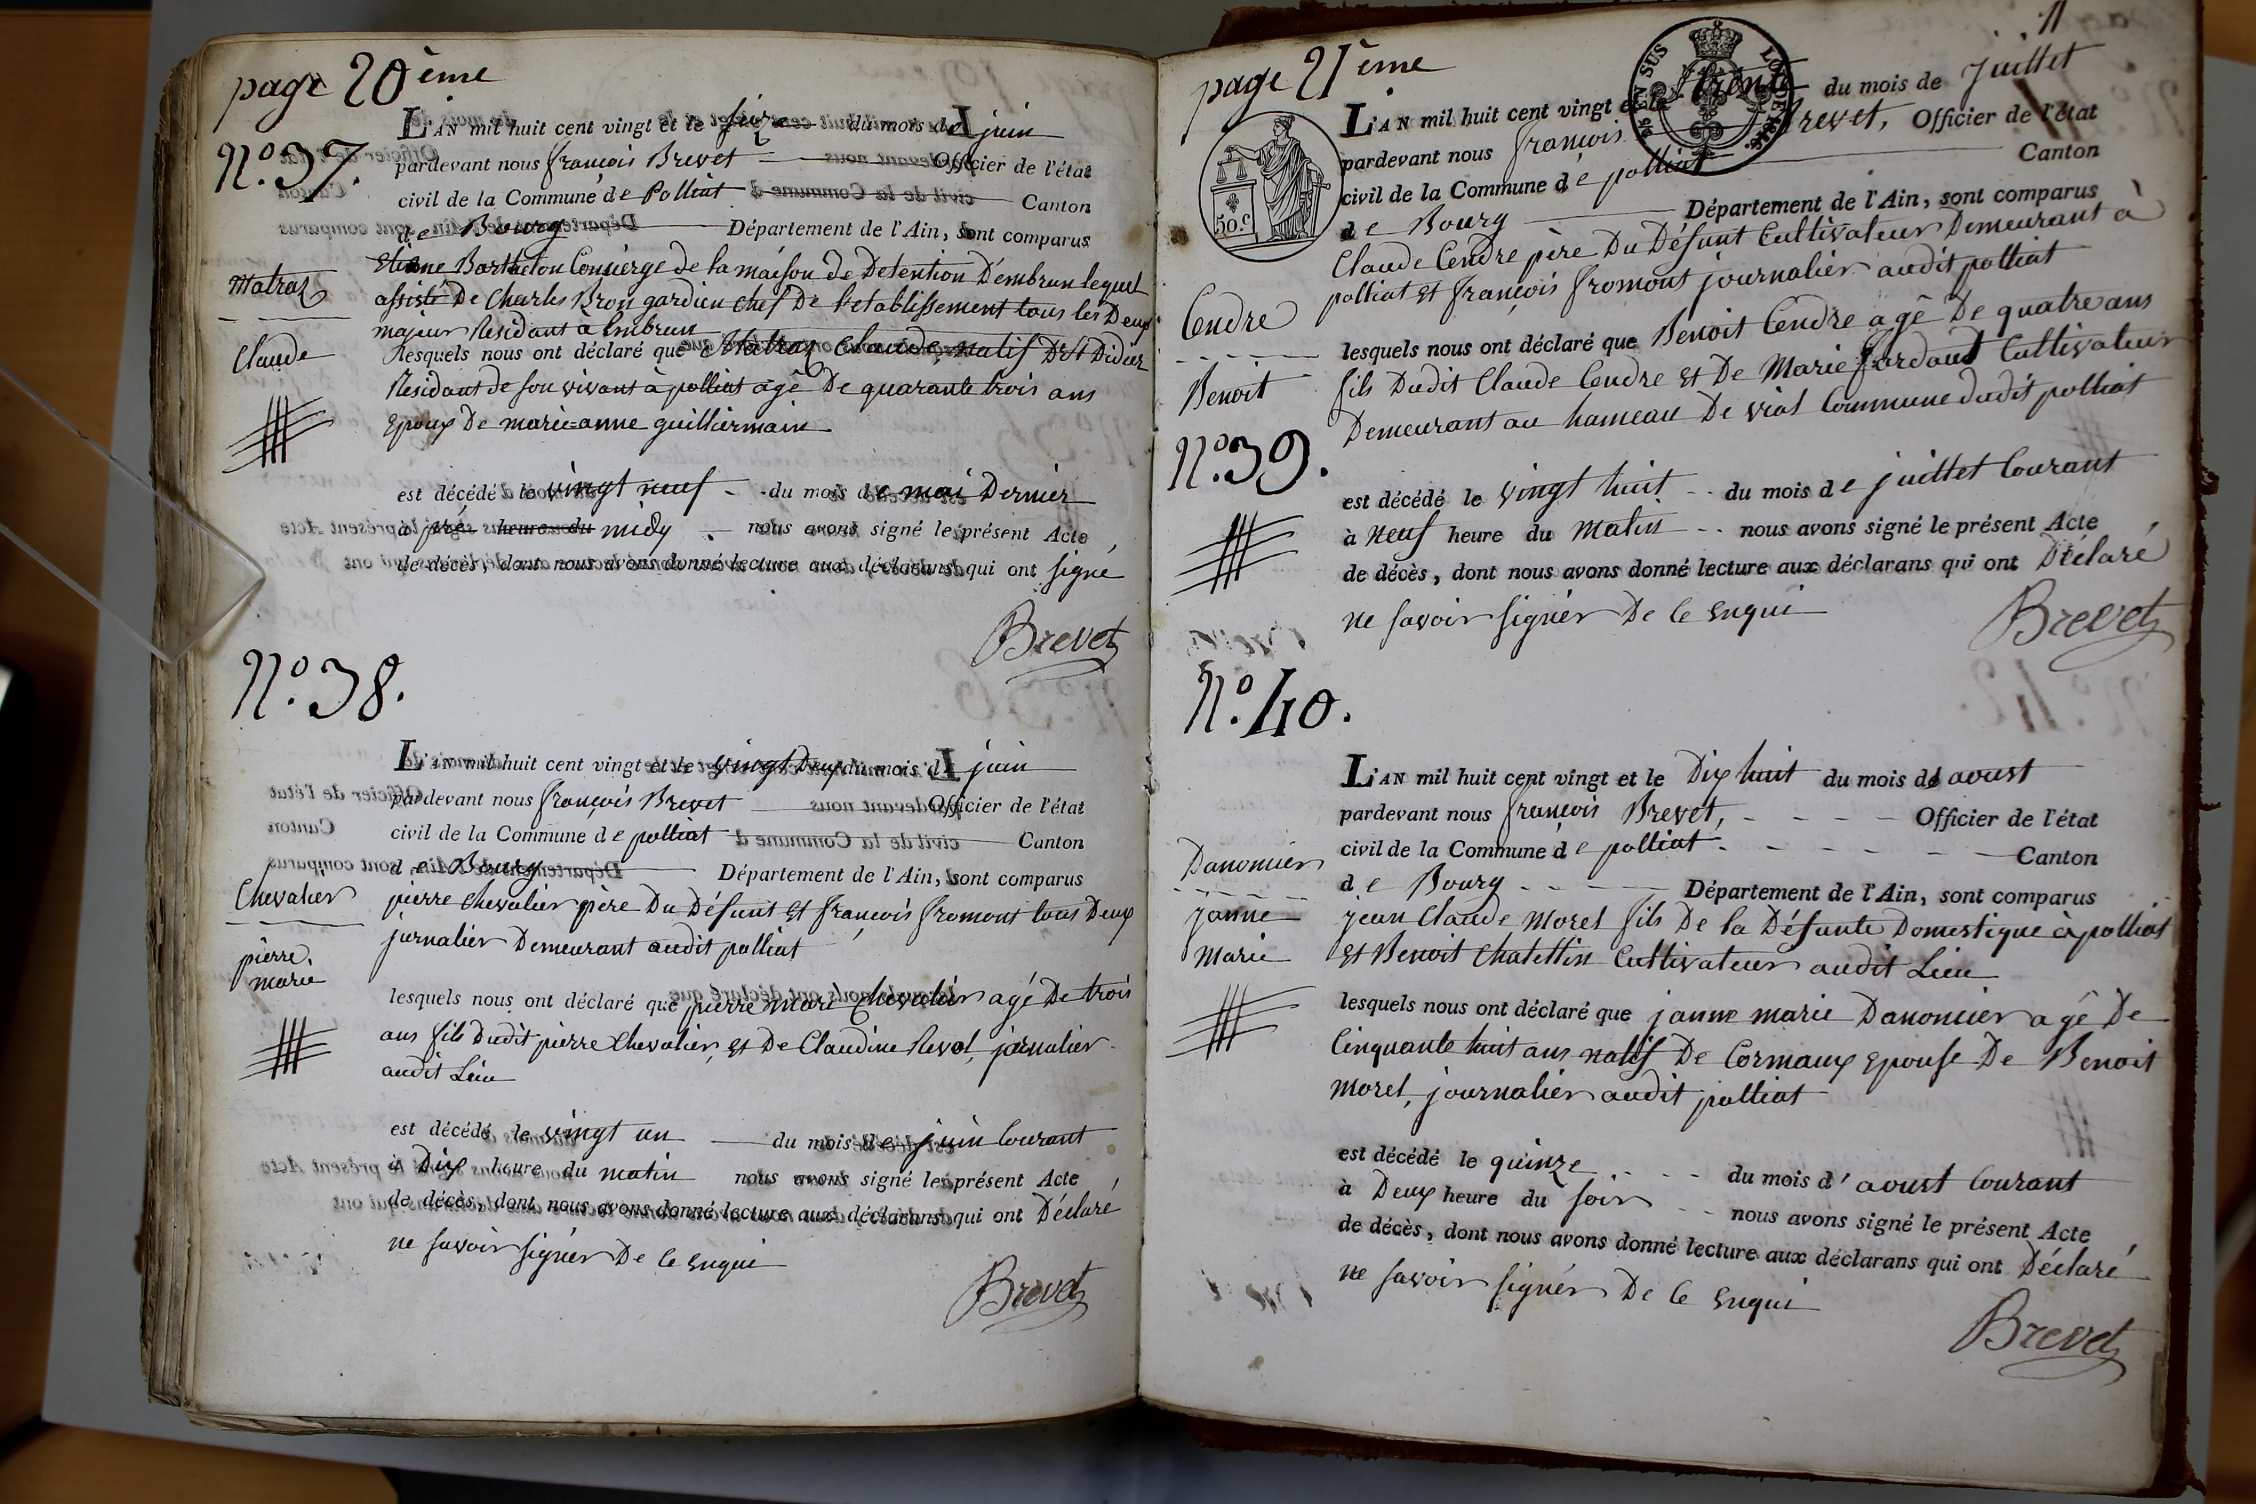 page 20ème
N.º 37.
L'AN mil huit cent vingt et le seize du mois de juin
pardevant nous françois Brevet Officier de l'état
civil de la Commune de Polliat Canton
de Bourg Département de l'Ain, sont comparus
Matraz
Claude
Etienne Barthelon Concierge de la maison de Detention D'embrun lequel
assisté De Charles Bron gardien chef De l'etablissement tous les Deux
majeur Residant a Embrun
lesquels nous ont déclaré que Matraz Claude natif De St Didier
Residant de son vivant à polliat agé De quarante trois ans
Epoux De marie-anne guilliermain
est décédé le vingt neuf du mois de mai Dernier
à heure du midy nous avons signé le présent Acte
de décès, dont nous avons donné lecture aux déclarans qui ont signé
Brevet
N.º 38.
L'AN mil huit cent vingt et le vingt Deux du mois de juin
pardevant nous françois Brevet Officier de l'état
civil de la Commune de polliat Canton
de Bourg Département de l'Ain, sont comparus
Chevalier
pierre
marie
pierre chevalier père Du Défunt et françois fromont tous Deux
jurnalier Demeurant audit polliat
lesquels nous ont déclaré que pierre mari chevalier agé De trois
ans fils Dudit pierre chevalier, et De Claudine Revol, jornalier
audit Lieu
est décédé le vingt un du mois de juin Courant
à Dix heure du matin nous avons signé le présent Acte
de décès, dont nous avons donné lecture aux déclarans qui ont Déclaré
ne savoir signér De ce Enqui
Brevet
11
page 21ème
50.c
EN SUS
LOI DE 1816.
L'AN mil huit cent vingt et le trente du mois de Juillet
pardevant nous françois Brevet, Officier de l'état
civil de la Commune de polliat Canton
de Bourg Département de l'Ain, sont comparus
Claude Cendre père Du Défunt Cultivateur Demeurant à
polliat et françois fromont journalier audit polliat
Cendre
Benoit
N.º 39.
lesquels nous ont déclaré que Benoit Cendre agé De quatre ans
fils Dudit Claude Cendre et De Marie Cultivateur
Demeurant au hameau De vial Commune dudit polliat
est décédé le vingt huit du mois de juillet Courant
à Neuf heure du Matin nous avons signé le présent Acte
de décès, dont nous avons donné lecture aux déclarans qui ont Déclaré
ne savoir signér De ce Enqui
Brevet
N.º 40.
L'AN mil huit cent vingt et le Dix huit du mois d' aoust
pardevant nous françois Brevet, Officier de l'état
civil de la Commune de polliat Canton
de Bourg Département de l'Ain, sont comparus
Danonier
janne
Marie
jean Claude Morel fils De la Défunte Domestique à polliat
et Benoit Chatellin Cultivateur audit Lieu
lesquels nous ont déclaré que janne marie Danonier agé De
Cinquante huit ans natif De Cormaux Epouse De Benoit
Morel, journalier audit polliat
est décédé le quinze du mois d'aoust Courant
à Deux heure du soir nous avons signé le présent Acte
de décès, dont nous avons donné lecture aux déclarans qui ont Déclaré
ne savoir signér De ce Enqui
Brevet